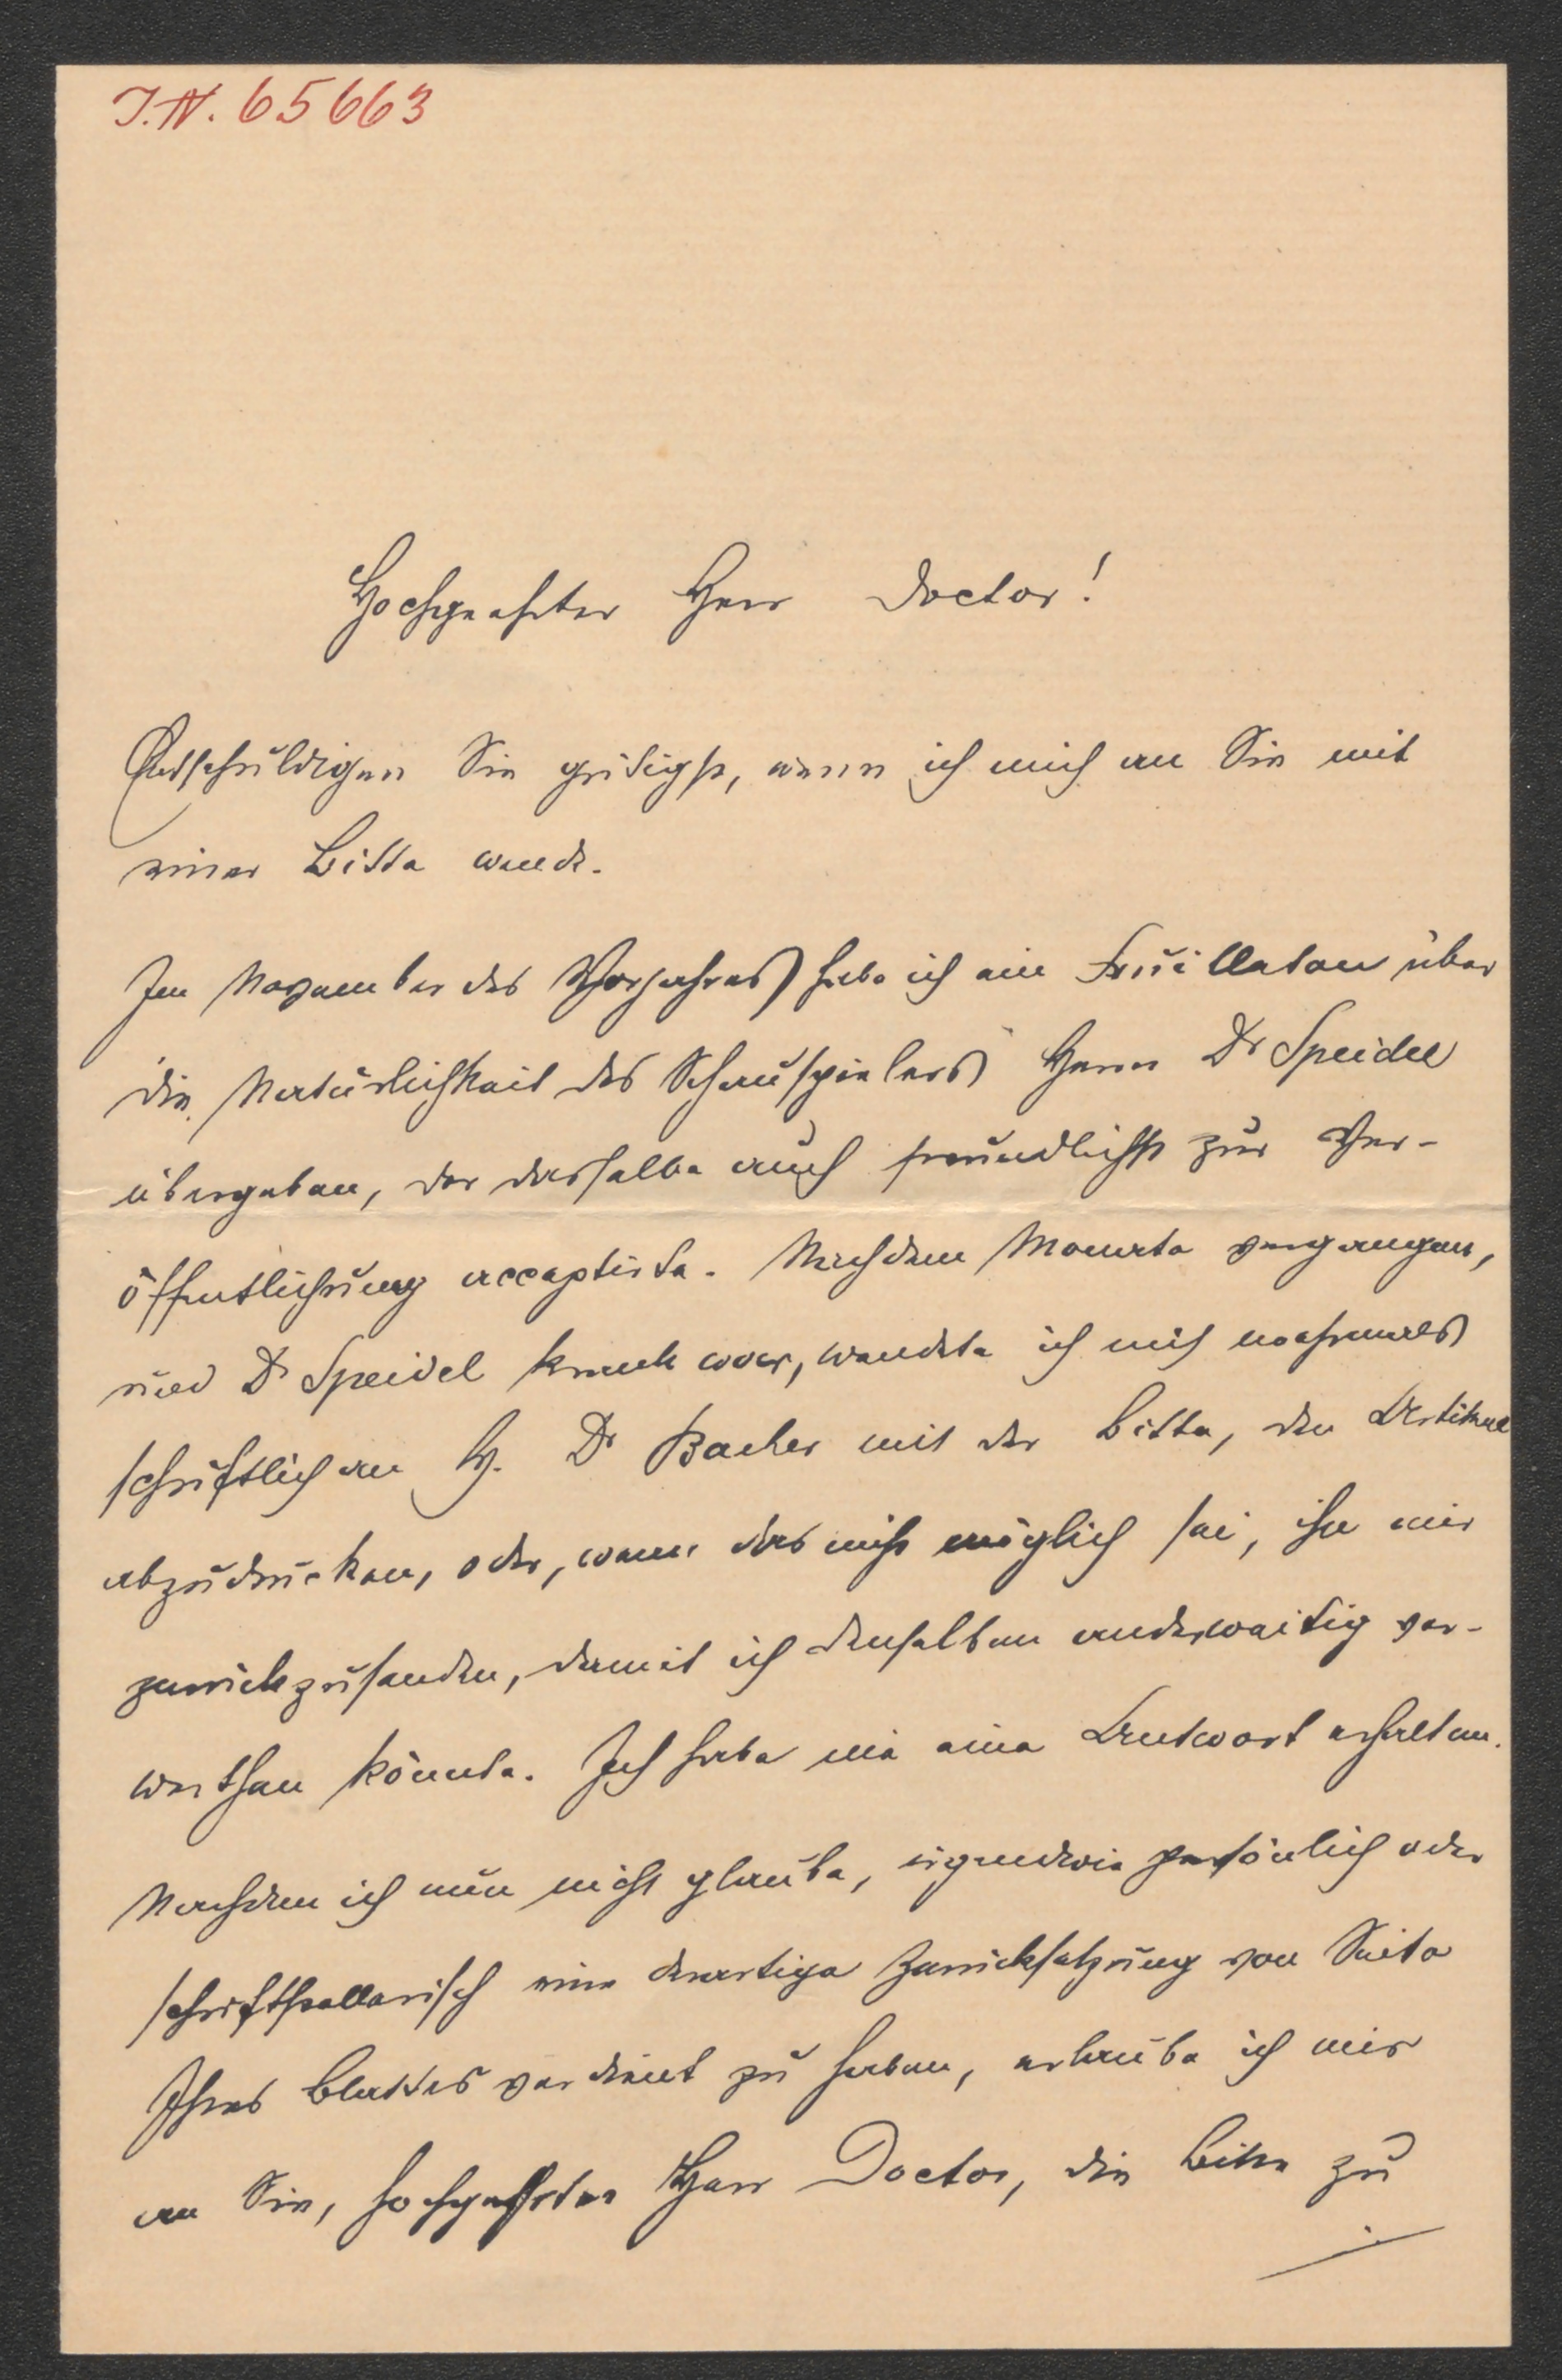 J.N. 65663
Hochgeehrter Herr Doctor!
Entschuldigen Sie gütigst, wenn ich mich an Sie mit
einer Bitte wende.
Im November des Vorjahres habe ich ein Feuilleton über
die Natürlichkeit des Schauspielers Herrn Dr Speidel
übergeben, der dasselbe auch freundlichst zur Ver-
öffentlichung acceptirte. Nachdem Monate vergangen,
und Dr Speidel krank war, wandte ich mich nochmals
schriftlich an H. Dr Bacher mit der Bitte, den Artikel
abzudrucken, oder, wenn das nicht möglich sei, ihn mir
zurückzusenden, damit ich denselben anderweitig ver-
werthen könnte. Ich habe nie eine Antwort erhalten.
Nachdem ich nun nicht glaube, irgendwie persönlich oder
schriftstellerisch eine derartige Zurücksetzung von Seite
Ihres Blattes verdient zu haben, erlaube ich mir
an Sie, hochgeehrter Herr Doctor, die Bitte zu